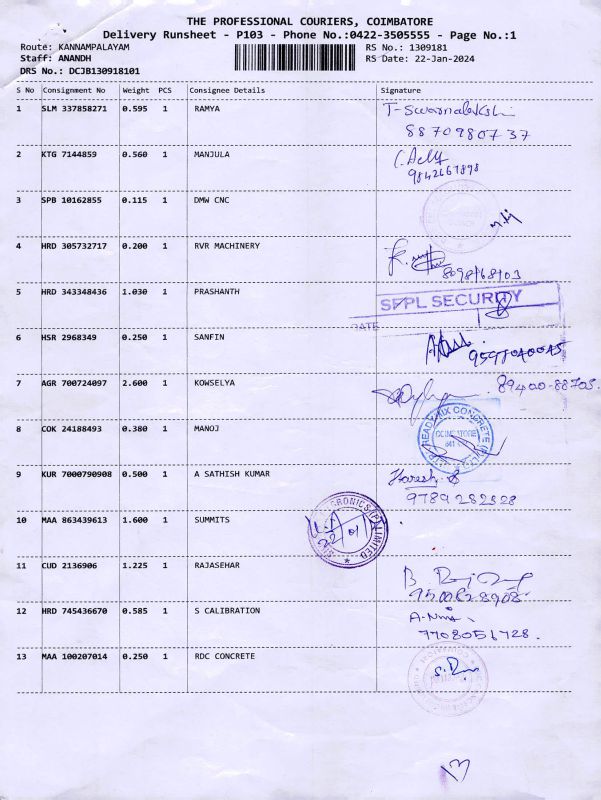 THE PROFESSIONAL COURIERS, COIMBATORE
Delivery Runsheet - P103 - Phone No.:0422-3505555 - Page No.:1
Route: KANNAMPALAYAM RS No.: 1309181
Staff: ANANDH RS Date: 22-Jan-2024
DRS No.: DCJB130918101
S No Consignment No Weight PCS Consignee Details Signature
1 SLM 337858271 0.595 1 RAMYA
8870980737
2 KTG 7144859 0.560 1 MANJULA
9842667898
3 SPB 10162855 0.115 1 DMW CNC
4 HRD 305732717 0.200 1 RVR MACHINERY
5 HRD 343348436 1.030 1 PRASHANTH
SFPL SECURITY
DATE
6 HSR 2968349 0.250 1 SANFIN
7 AGR 700724097 2.600 1 KOWSELYA
89400-88705.
8 COK 24188493 0.380 1 MANOJ
READYMIX CONCRETE
9 KUR 7000790908 0.500 1 A SATHISH KUMAR Haresh S
9789282828
10 MAA 863439613 1.600 1 SUMMITS
22/01
LIMITED
11 CUD 2136906 1.225 1 RAJASEHAR
12 HRD 745436670 0.585 1 S CALIBRATION
7708056728.
13 MAA 100207014 0.250 1 RDC CONCRETE
13